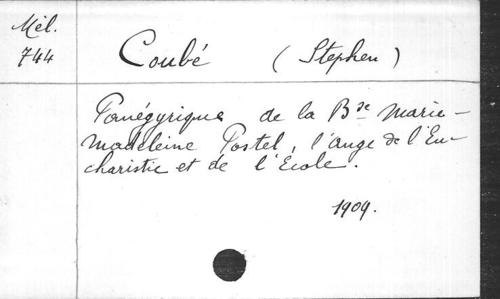 Mél.
744
Coubé (Stephen)
Panégyrique de la Bse Marie-
Madeleine Postel, l'ange de l'Eu-
charistie et de l'Ecole.
1909.